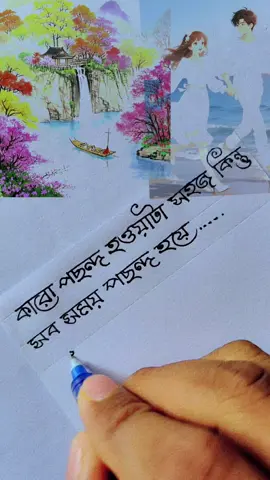 কারো পছন্দ হওয়াটা সহজ কিন্তু
সব সময় পছন্দ হয়ে.....